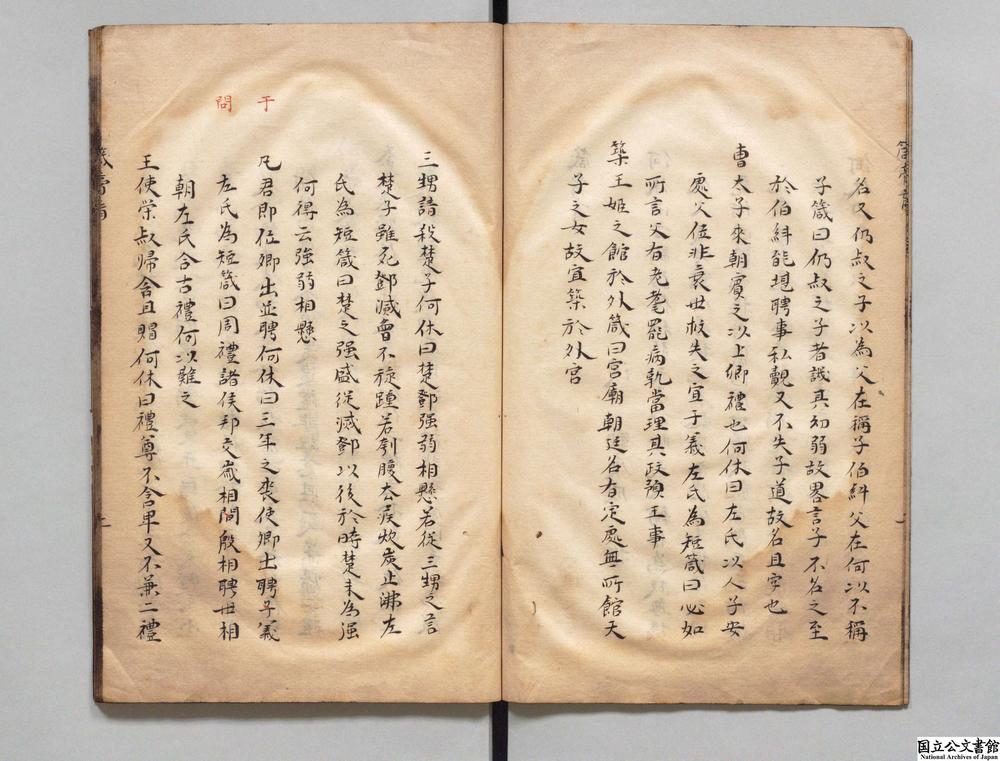 名又仍叔之子以為父在稱子伯糾父在何以不稱
子箴曰仍叔之子者譏其幼弱故畧言子不名之至
於伯糾能堪聘事私覿又不失子道故名且字也
曹太子來朝賓之以上卿禮也何休曰左氏以人子安
處父位非衰世救失之宜于義左氏為短箴曰必如
所言父有老耄罷病孰當理其政預王事
築王姬之館於外箴曰宮廟朝廷各有定處無所館天
子之女故宜築於外宮
三甥請殺楚子何休曰楚鄧强弱相懸若從三甥之言
楚子雖死鄧滅曾不旋踵若刳腹去疾炊炭止沸左
氏為短箴曰楚之强盛從滅鄧以後於時楚未為强
何得云强弱相懸
凡君即位卿出並聘何休曰三年之喪使卿出聘子義
左氏為短箴曰周禮諸侯邦交歲相間殷相聘世相
朝左氏合古禮何以難之
王使荣叔帰含且賵何休曰禮尊不含卑又不兼二禮
于
問
国立公文書館
National Archives of Japan